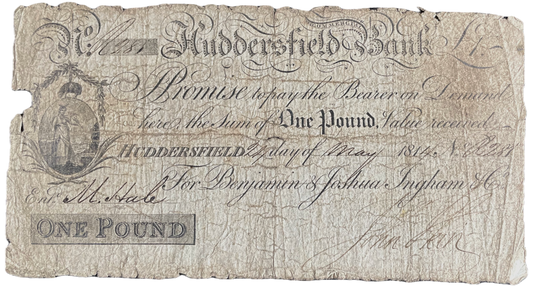 No. Huddersfield Bank £1-
COMMERCIAL
I Promise to pay the Bearer on Demand
here, the Sum of One Pound, Value received
HUDDERSFIELD day of May 1814 No.
For Benjamin & Joshua Ingham & Co.
Ent. M. Hale
ONE POUND
John